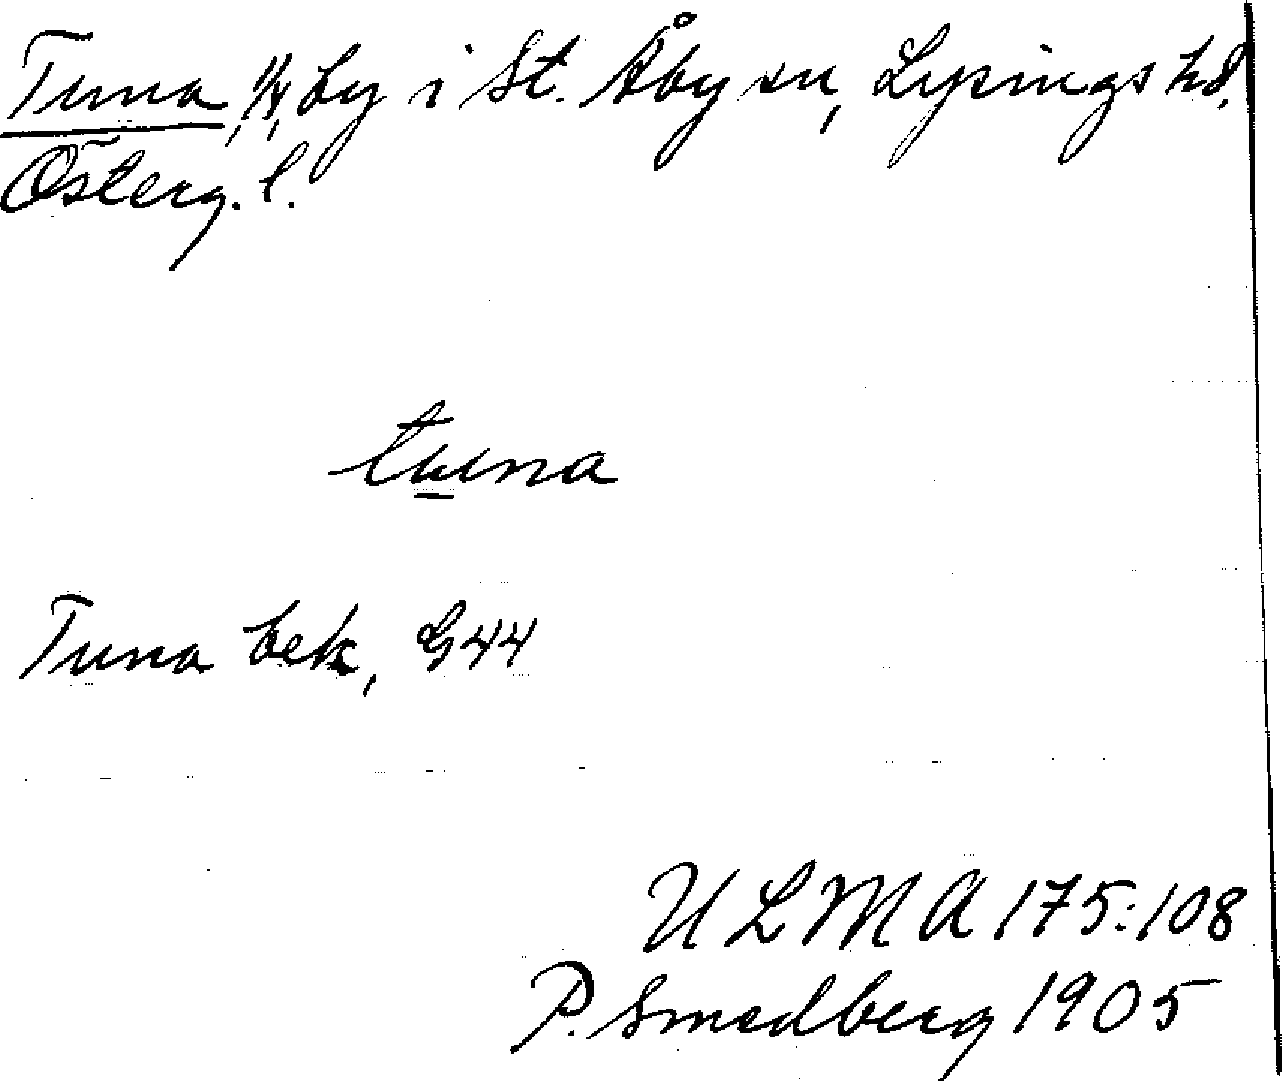 Tuna, 1/4, by i St. Åby sn, Lysings hd,
Österg. l.
tuna
Tuna bek, G44
ULMA 175:108
P. Smedberg 1905